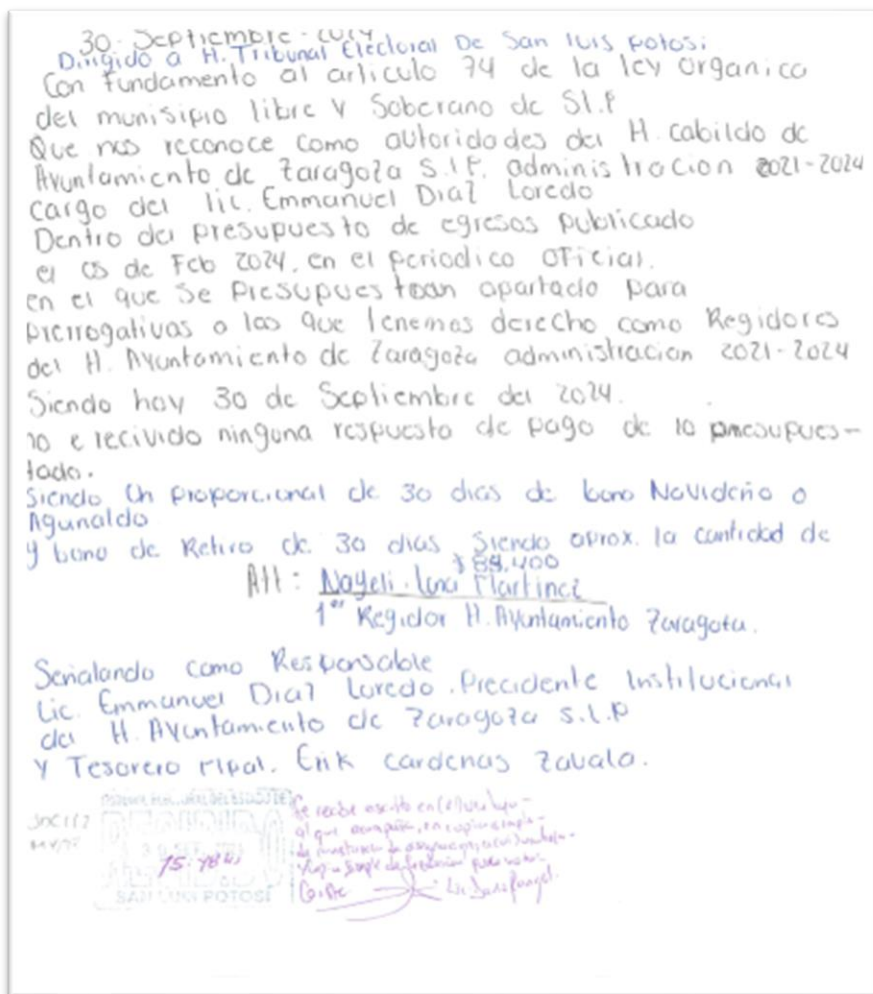 30 Septiembre - 2024
Dirigido a H. Tribunal Electoral De San luis potosi
Con fundamento al articulo 74 de la ley organica
del munisipio libre y Soberano de S.L.P
Que nos reconoce como autoridades del H. cabildo de
Ayuntamiento de Zaragoza S.L.P. administracion 2021-2024
cargo del lic. Emmanuel Diaz Loredo
Dentro del presupuesto de egresos publicado
el 05 de Feb 2024, en el periodico oficial.
en el que se presupues taan apartado para
prerrogativas a las que tenemos derecho como Regidores
del H. Ayuntamiento de Zaragoza administracion 2021-2024
Siendo hoy 30 de Septiembre del 2024.
no e recivido ninguna respuesta de pago de lo presupues-
tado.
Siendo Un proporcional de 30 dias de bono Navideño o
Agunaldo
y bono de Retiro de 30 dias Siendo aprox. la cantidad de
$89,400
Att: Nayeli Martinez
1er Regidor H. Ayuntamiento Zaragoza.
Señalando como Responsable
Lic. Emmanuel Diaz Loredo. Precidente Institucional
del H. Ayuntamiento de Zaragoza S.L.P
Y Tesorero mpal. Erik Cardenas Zavala.
Se recibe escrito en
SAN LUIS POTOSÍ